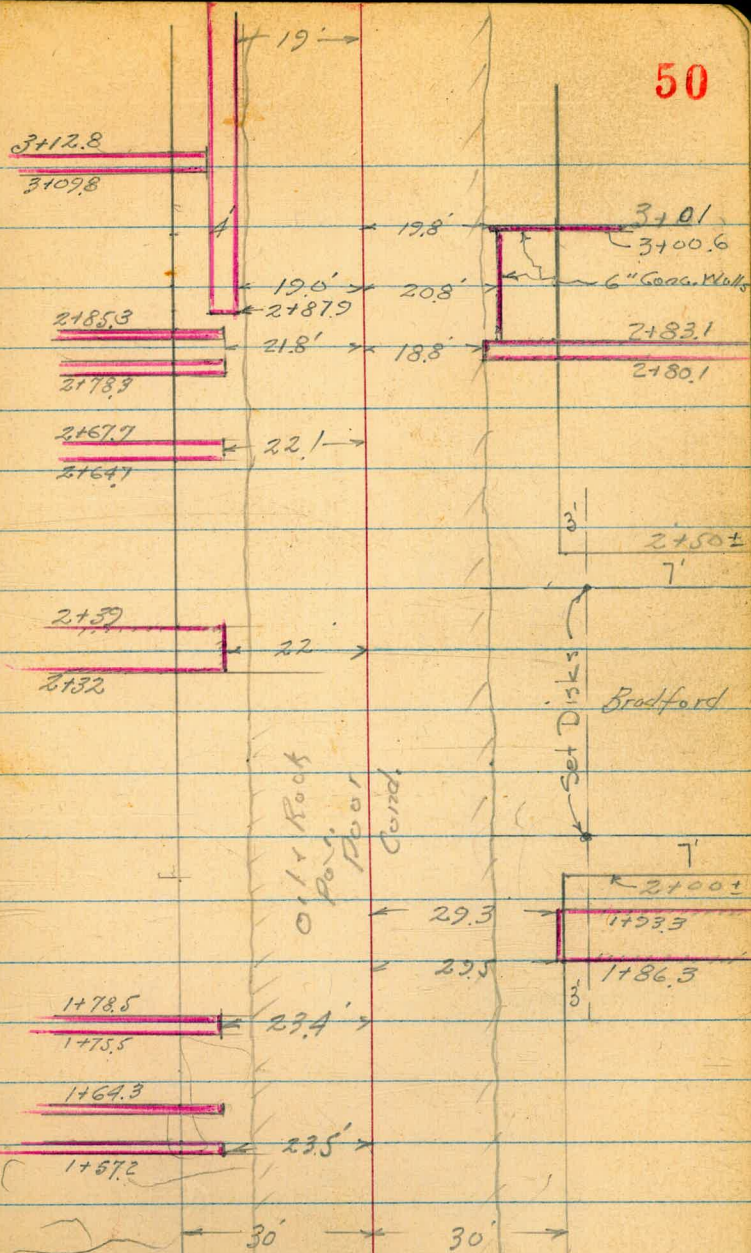 19'
50
3+12.8
3+09.8
4'
19.8'
3+01
3+00.6
19.0'
20.8'
6" Conc. Walls
2+87.9
2+85.3
21.8'
18.8'
2+83.1
2+78.9
2+80.1
2+67.7
22.1
2+64.7
3'
2+50±
7'
2+39
22'
2+32
Set Disks
Bradford
Oil & Rock
Pav.
Poor
Cond.
7'
2+00±
29.3
1+93.3
29.5
1+86.3
3'
1+78.5
23.4'
1+75.5
1+64.3
23.5'
1+57.2
30'
30'